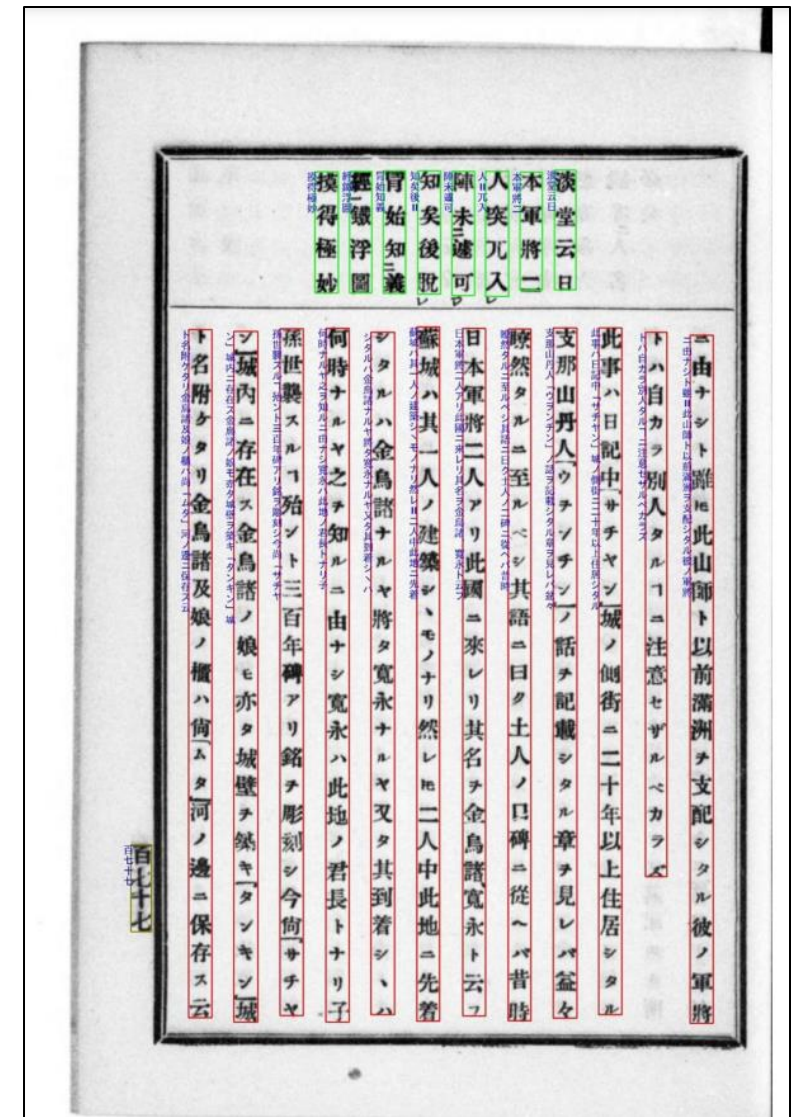 淡堂云日
本軍將二
人突兀入
陣未遽可
知矣後脫
胄始知義
經鐵浮圖
摸得極妙
ニ由ナシト雖𪜈此山師ト以前滿洲ヲ支配シタル彼ノ軍將
トハ自カラ別人タルヿニ注意セザルベカラズ
此事ハ日記中「サチヤン」城ノ側街ニ二十年以上住居シタル
支那山丹人「ウチンチン」ノ話ヲ記載シタル章ヲ見レバ益々
瞭然タルニ至ルベシ其語ニ曰ク土人ノ口碑ニ從ヘバ昔時
日本軍將二人アリ此國ニ來レリ其名ヲ金烏諸、寬永ト云フ
蘇城ハ其一人ノ建築シヽモノナリ然レ𪜈二人中此地ニ先着
シタルハ金烏諸ナルヤ將タ寬永ナルヤ又タ其到着シヽハ
何時ナルヤ之ヲ知ルニ由ナシ寬永ハ此地ノ君長トナリ子
孫世襲スルヿ殆ンド三百年碑アリ銘ヲ彫刻シ今尙「サチヤ
ン」城內ニ存在ス金烏諸ノ娘モ亦タ城壁ヲ築キ「タンキン」城
ト名附ケタリ金烏諸及娘ノ櫃ハ尙「ムタ」河ノ邊ニ保存ス云
百七十七